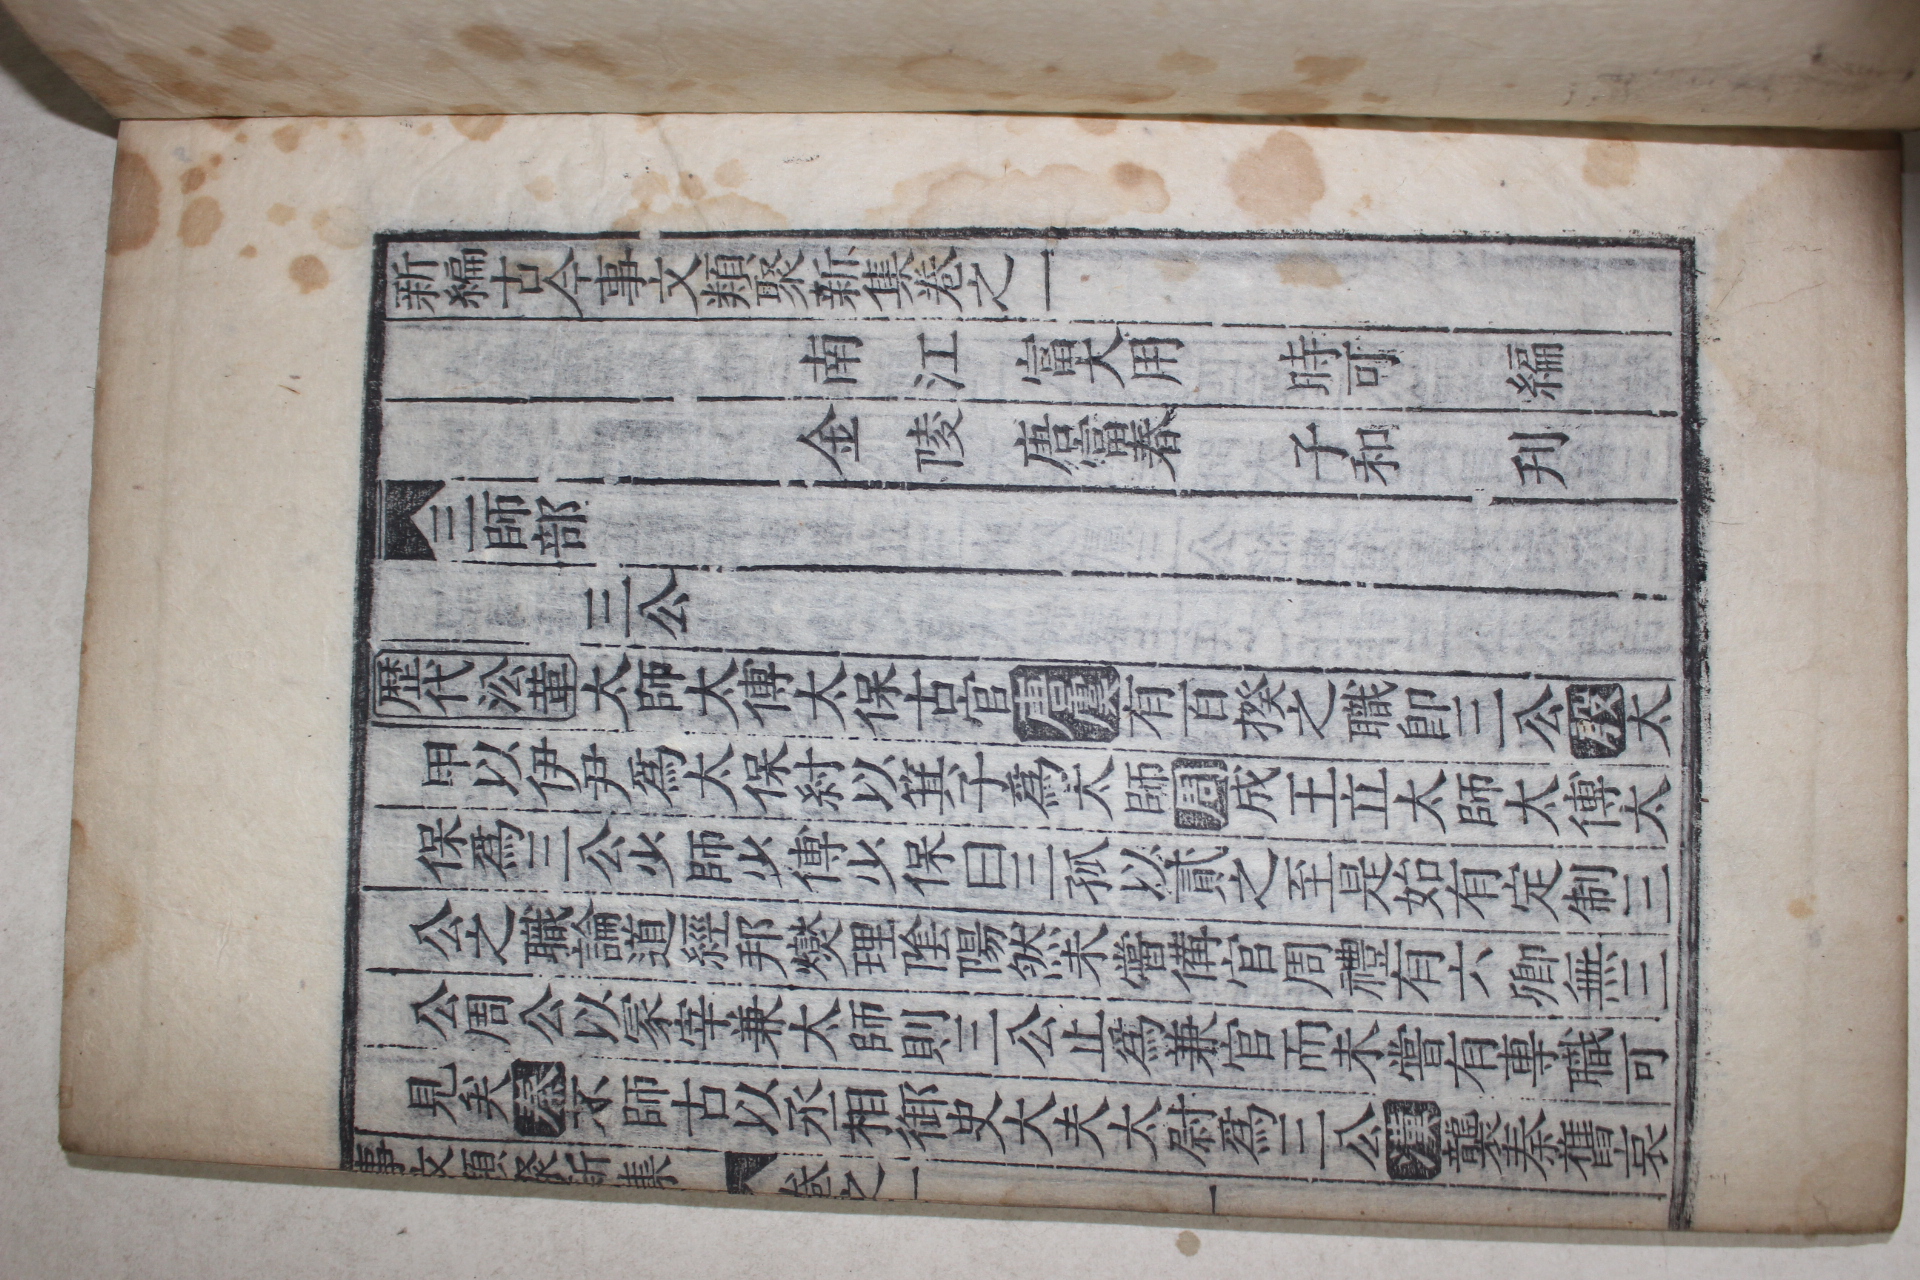 新編古今事文類聚新集卷之一
南江 富大用 時可 編
金陵 唐富春 子和 刋
三師部
三公
歷代㳂革太師太傅太保古官唐虞有百揆之職卽三公殷太
甲以伊尹爲太保紂以箕子爲太師周成王立太師太傅太
保爲三公少師少傅少保曰三孤以貳之至是始有定制三
公之職論道經邦爕理陰陽然未嘗備官周禮有六卿無三
公周公以冢宰兼太師則三公止爲兼官而未嘗有專職可
見矣秦不師古以丞相御史大夫太尉爲三公漢襲秦舊哀
事文類聚新集 卷之一 一